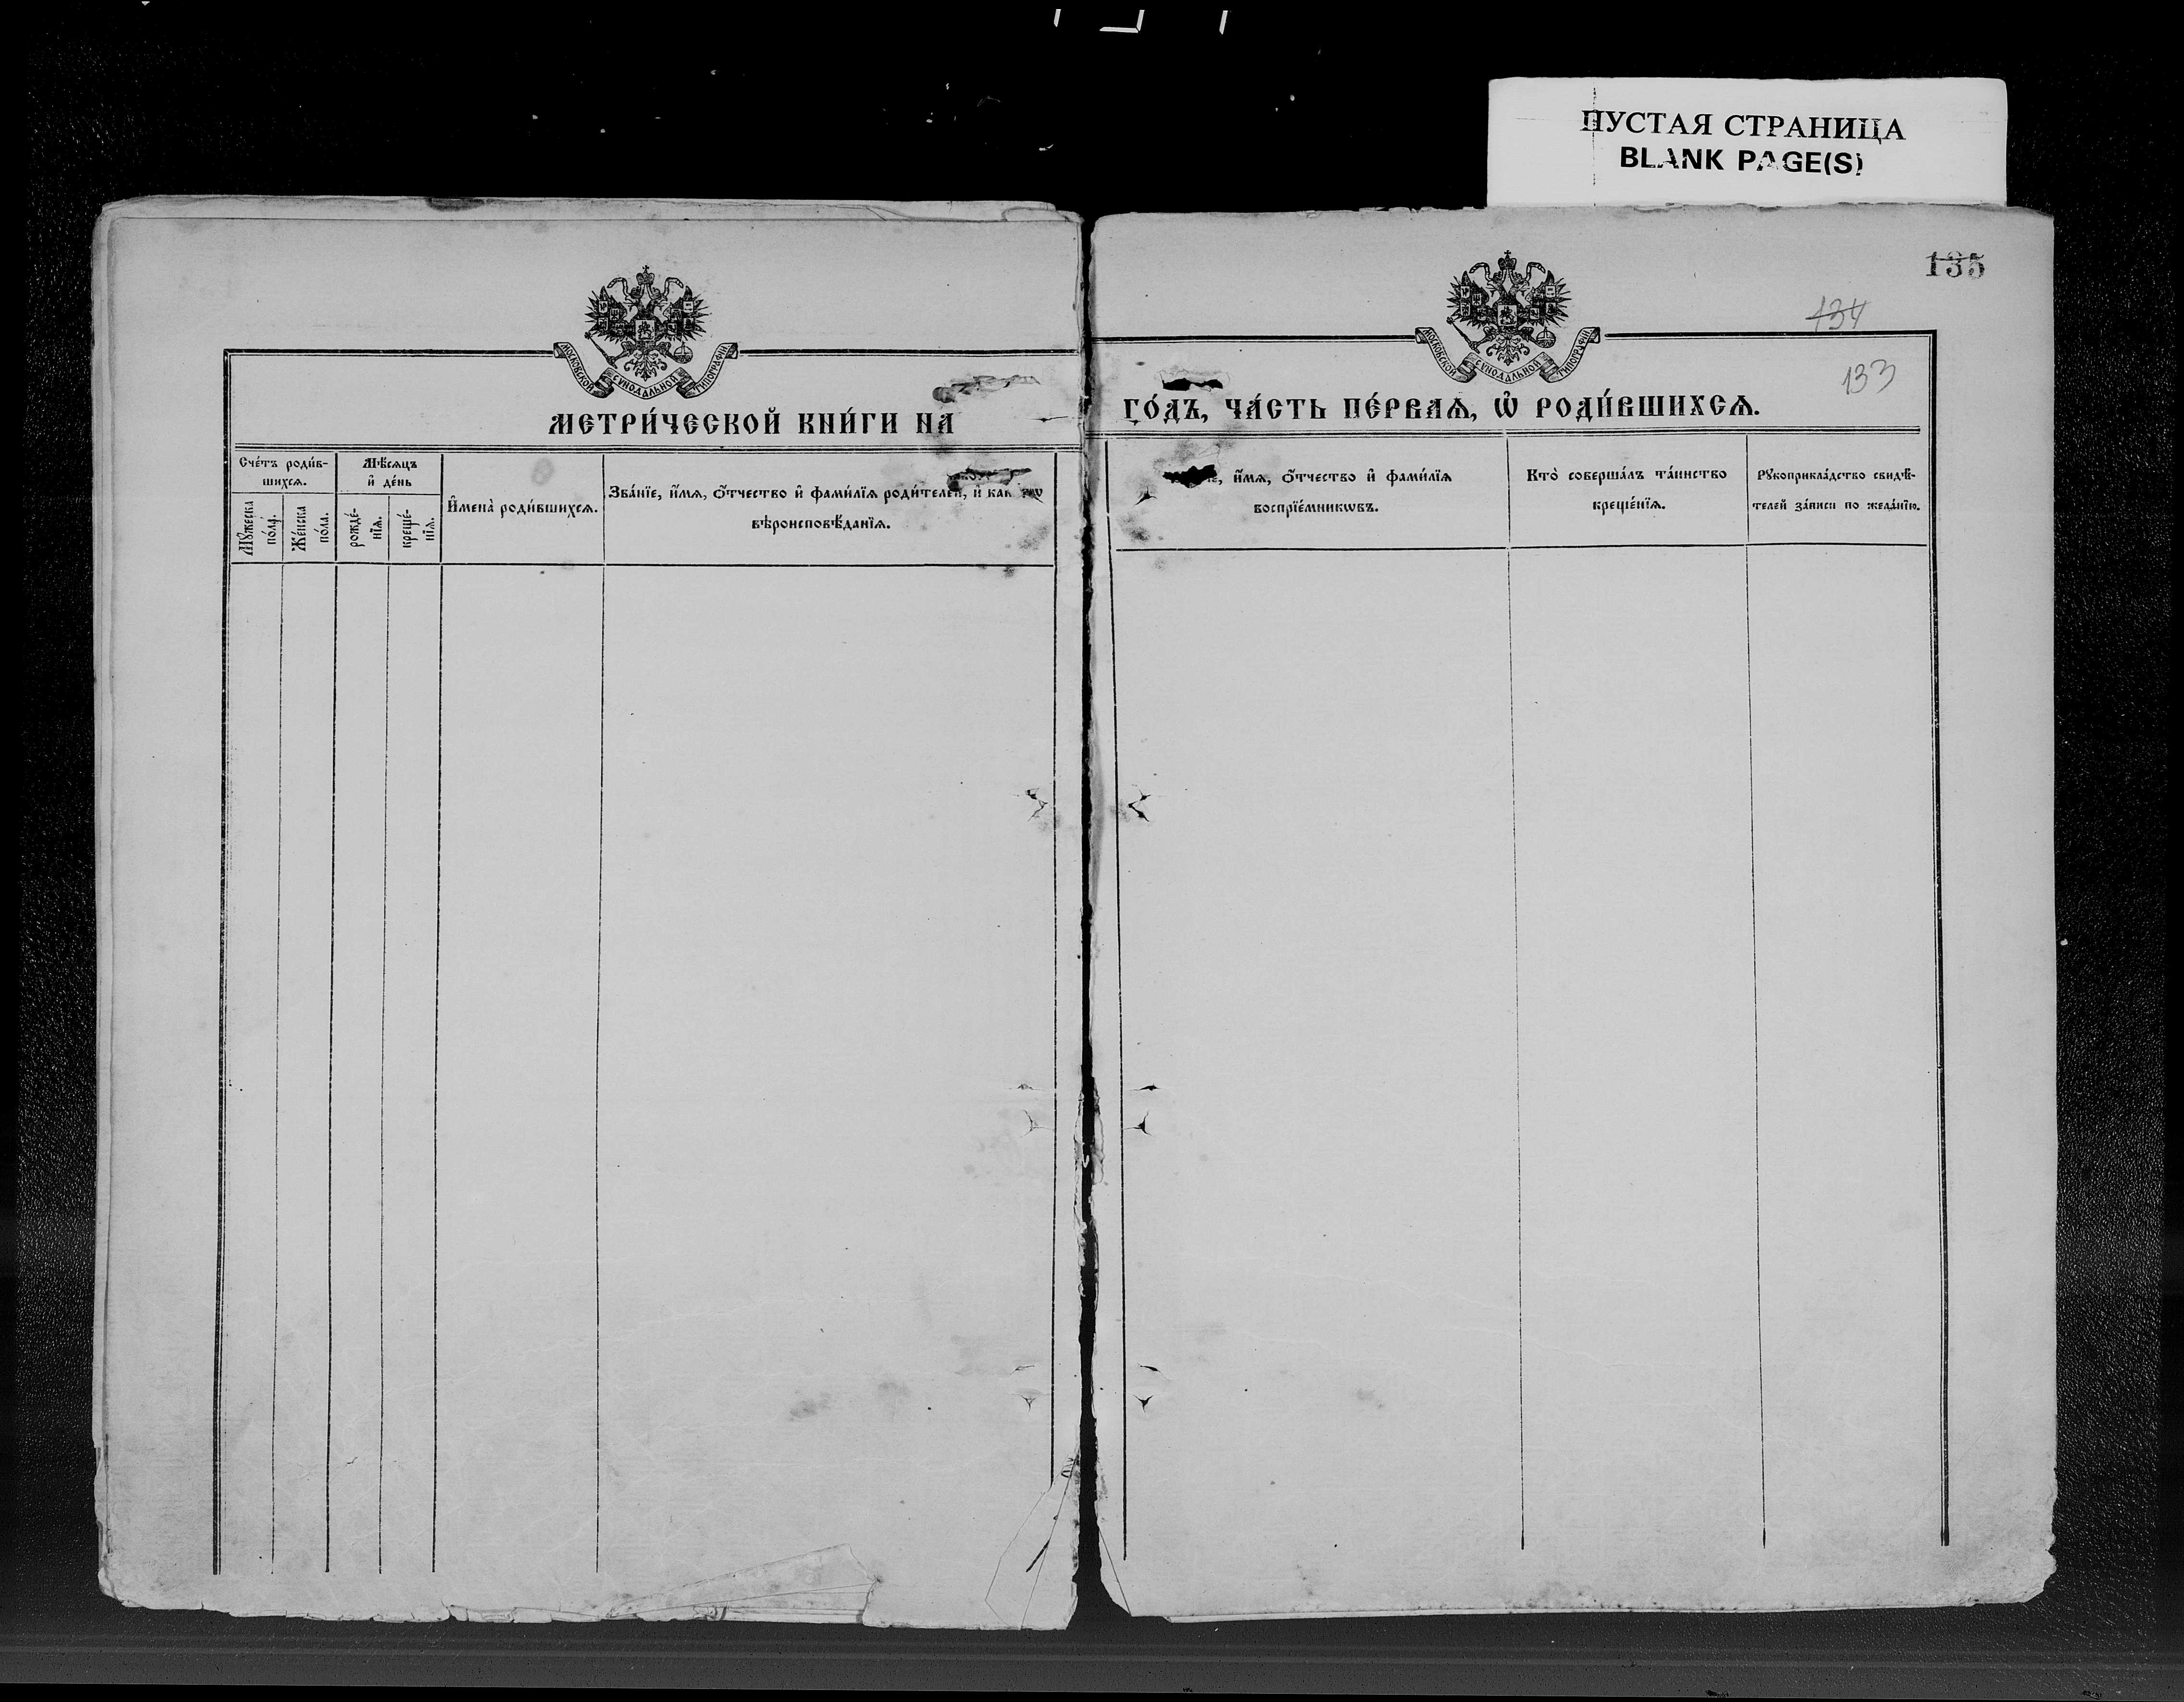 ПУСТАЯ СТРАНИЦА
BLANK PAGE(S)
135
134
133
МОСКОВСКОЙ СѴНОДАЛЬНОЙ ТИПОГРАФІИ
МОСКОВСКОЙ СѴНОДАЛЬНОЙ ТИПОГРАФІИ
МЕТРИ́ЧЕСКОЙ КНИ́ГИ НА
ГО́ДЪ, ЧА́СТЬ ПЕ́РВАѦ, Ѡ҆ РОДИ́ВШИХСѦ.
Сче́тъ роди́в-
шихсѧ.
Мꙋ́жеска
по́ла.
Же́нска
по́ла.
Мѣ́сѧцъ
и҆ де́нь
рожде́-
нїѧ.
креще́-
нїѧ.
И҆мена̀ роди́вшихсѧ.
Зва́нїе, и҆́мѧ, ѻ҆́тчество и҆ фами́лїѧ роди́телей, и҆
вѣроисповѣ́данїѧ.
и҆́мѧ, ѻ҆́тчество и҆ фами́лїѧ
воспрїе́мникѡвъ.
Кто̀ соверша́лъ та́инство
креще́нїѧ.
Рꙋкоприкла́дство свидѣ́-
телей за́писи по жела́нїю.